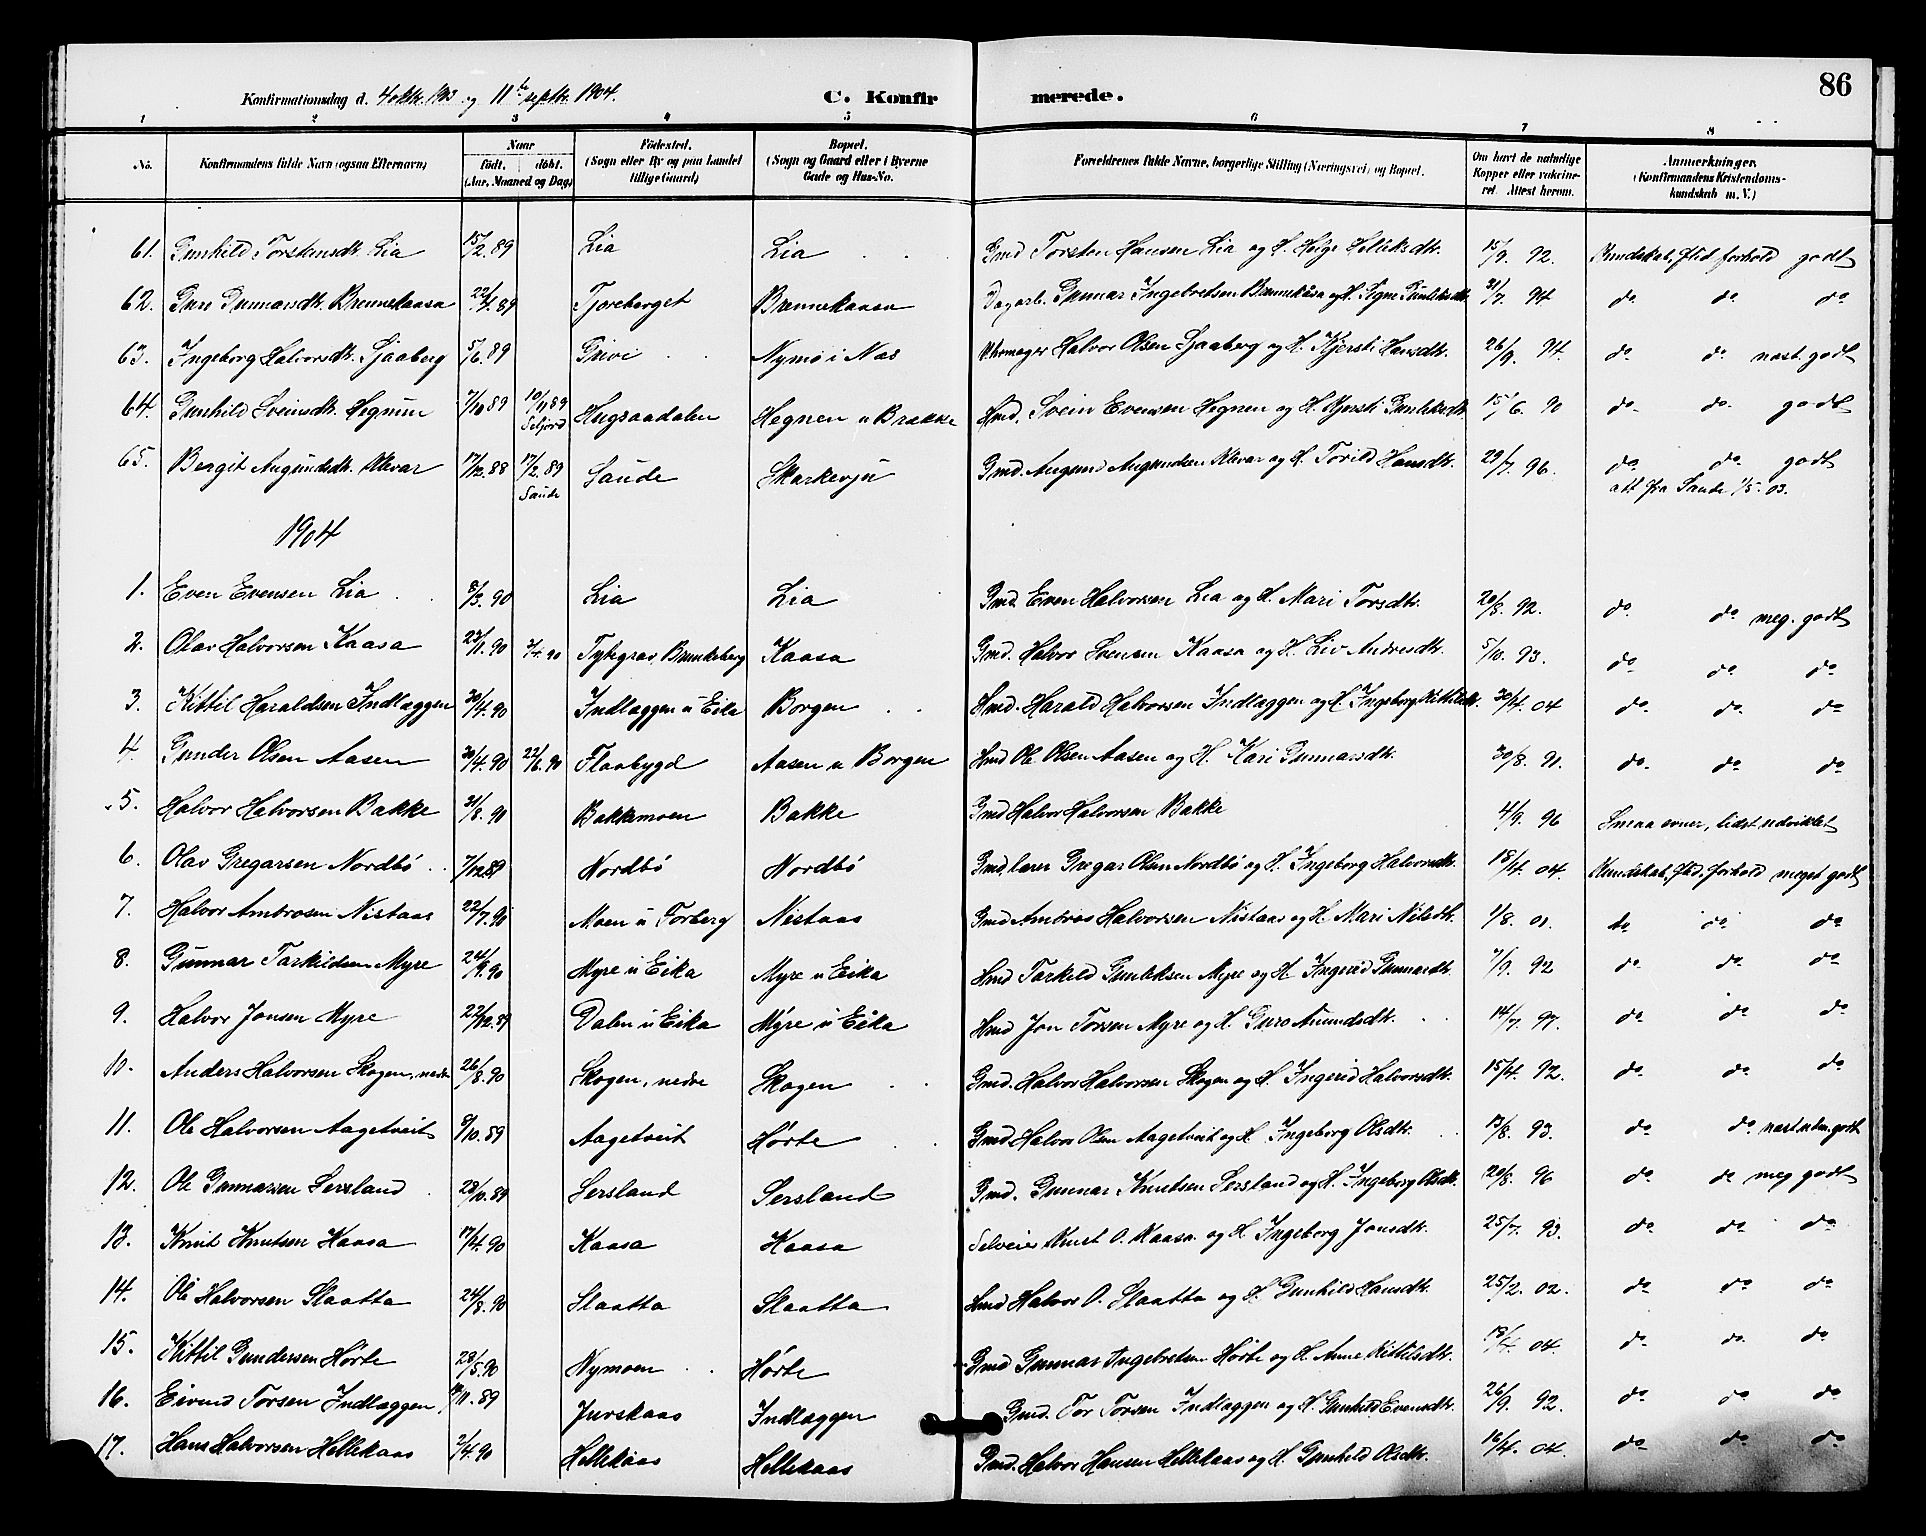 86
Konfirmationsdag d. 4 oktr. 1903 og 11te septbr. 1904. C. Konfirmerede.
1 2 3 4 5 6 7 8
No. Konfirmandens fulde Navn (ogsaa Efternavn) Naar født. døbt. (Aar, Maaned og Dag) Fødested. (Sogn eller By og paa Landet tillige Gaard) Bopæl. (Sogn og Gaard eller i Byerne Gade og Hus-No. Forældrenes fulde Navne, borgerlige Stilling (Næringsvei) og Bopæl. Om havt de naturlige Kopper eller vakcineret. Attest herom. Anmærkninger. (Konfirmandens Kristendomskundskab m. V.)
61. Gunhild Torstensdt. Lia 15/2.89 Lia Lia Gmd Torsten Hansen Lia og H. Helge Helliksdt. 15/9. 92. Kundskab, flid forhold godt
62. Guro Gunnarsdt. Brennekaasa 22/4.89 Tjoreberget Brennekaasa Dagarb. Gunnar Ingebretsen Brennekaasa og H. Signe Gunleiksdt. 21/7. 94 do do do
63. Ingeborg Halvorsdt. Sjaaberg 5/6.89 Grivi Nymo i Nes Skomager Halvor Olsen Sjaaberg og H. Kjersti Hansdt. 26/9. 94. do do næst. godt
64. Gunhild Sveinsdt. Hegnen 7/10 89 10/11 89 Seljord Hugsaadalen Hegnen u Brække Hmd. Svein Evensen Hegnen og H. Kjersti Gunleiksdt. 15/6. 90 do do godt
65. Bergit Augundsdt. Klevar 17/12.88 17/2.89 Saude Saude Skarkevju Gmd. Augund Augundsen Klevar og H. Torild Hansdt. 29/7. 96. do do godt
att fra Saude 1/5. 03.
1904
1. Even Evensen Lia 8/3.90 Lia Lia Gmd. Even Halvorsen Lia og H. Mari Torsdt. 20/8. 92. do do meg. godt
2. Olav Halvorsen Kaasa 23/1.90 7/4.90 Tykegrav, Brunkeberg Kaasa Gmd. Halvor Svensen Kaasa og H. Liv Andresdt. 5/10. 93. do do do
3. Kittil Haraldsen Indlæggen 30/4.90 Indlæggen u Eika Borgen Hmd. Harald Halvorsen Indlæggen og H. Ingeborg Kittilsdt. 30/4. 04 do do do
4. Gunder Olsen Aasen 30/4.90 22/6.90 Flaabygd Aasen u Borgen Hmd Ole Olsen Aasen og H. Kari Gunnarsdt. 30/8. 91. do do do
5. Halvor Halvorsen Bakke 31/8.90 Bakkemoen Bakke Gmd Halvor Halvorsen Bakke 4/9. 96 Smaa evner, lidet udviklet
6. Olav Gregarsen Nordbø 7/12.89 Nordbø Nordbø Gmd, lærer Gregar Olsen Nordbø og H. Ingeborg Halvorsdt. 18/4. 04. Kundskab, flid, forhold meget godt
7. Halvor Ambrosen Nistaas 22/7.90 Moen u Forberg Nistaas Gmd Ambros Halvorsen Nistaas og H. Mari Nilsdt. 1/8. 01. do do do
8. Gunnar Tarkildsen Myre 24/9.90 Myre u Eika Myre u Eika Hmd Tarkild Gunleiksen Myre og H. Ingerid Gunnarsdt. 7/9. 92 do do do
9. Halvor Jonsen Myre 22/12.89 Dalen u Eika Myre u Eika Hmd Jon Torsen Myre og H. Guro Aamundsdt. 14/7. 97. do do do
10. Anders Halvorsen Skogen, nedre 26/8.90 Skogen, nedre Skogen Gmd. Halvor Halvorsen Skogen og H. Ingerid Halvorsdt. 15/4. 92. do do do
11. Ole Halvorsen Aagetveit 8/10.89 Aagetveit Hørte Gmd Halvor Olsen Aagetveit og H Ingeborg Olsdt. 13/8. 93. do do næst udm. godt
12. Ole Gunnarsen Sersland 23/10.89 Sersland Sersland Gmd. Gunnar Knutsen Sersland og H. Ingeborg Olsdt. 20/8. 96 do do meg godt
13. Knut Knutsen Kaasa 17/4.90 Kaasa Kaasa Selveier Knut O. Kaasa og H. Ingeborg Jonsdt. 25/7. 93. do do do
14. Ole Halvorsen Slaatta 24/8.90 Slaatta Slaatta Hmd Halvor O. Slaatta og H Gunhild Hansdt. 25/2. 02. do do do
15. Kittil Gundersen Hørte 28/5.90 Nymoen Hørte Gmd Gunnar Ingebretsen Hørte og H. Anne Kittilsdt. 18/4. 04. do do do
16. Eivind Torsen Indlæggen /11.89 Juvskaas Indlæggen Gmd. Tor Torsen Indlæggen og H. Gunhild Evensdt. 26/9. 92. do do do
17. Hans Halvorsen Hellekaas 2/4.90 Hellekaas Hellekaas Gmd. Halvor Hansen Hellekaas og H. Gunhild Olsdt. 16/4. 04. do do do